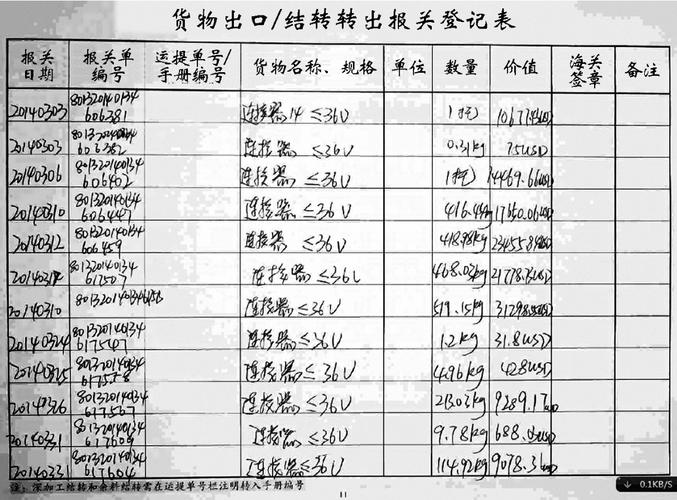 货物出口/结转转出报关登记表
报关日期 报关单编号 运提单号/手册编号 货物名称、规格 单位 数量 价值 海关签章 备注
20140303 801320140134606381 连接器14 ≤36V 1托
20140303 801320140134606382 连接器 ≤36V 0.31kg 75USD
20140306 801320140134606402 连接器 ≤36V 1托 14469.66USD
20140310 801320140134606447 连接器 ≤36V 17650.06USD
20140312 801320140134606459 连接器 ≤36V 418.98kg
801320140134617507 连接器 ≤36V 468.03kg
20140310 连接器 ≤36V 519.15kg
20140324 801320140134617547 连接器 ≤36V 1.2kg 31.8USD
20140325 801320140134617558 连接器 ≤36V 4.96kg 428USD
20140326 801320140134617567 连接器 ≤36V 9289.17USD
20140331 801320140134617609 连接器 ≤36V 9.78kg
20140331 801320140134617604 连接器 ≤36V 114.92kg
注：深加工结转和余料结转需在运提单号栏注明转入手册编号
11
0.1KB/S